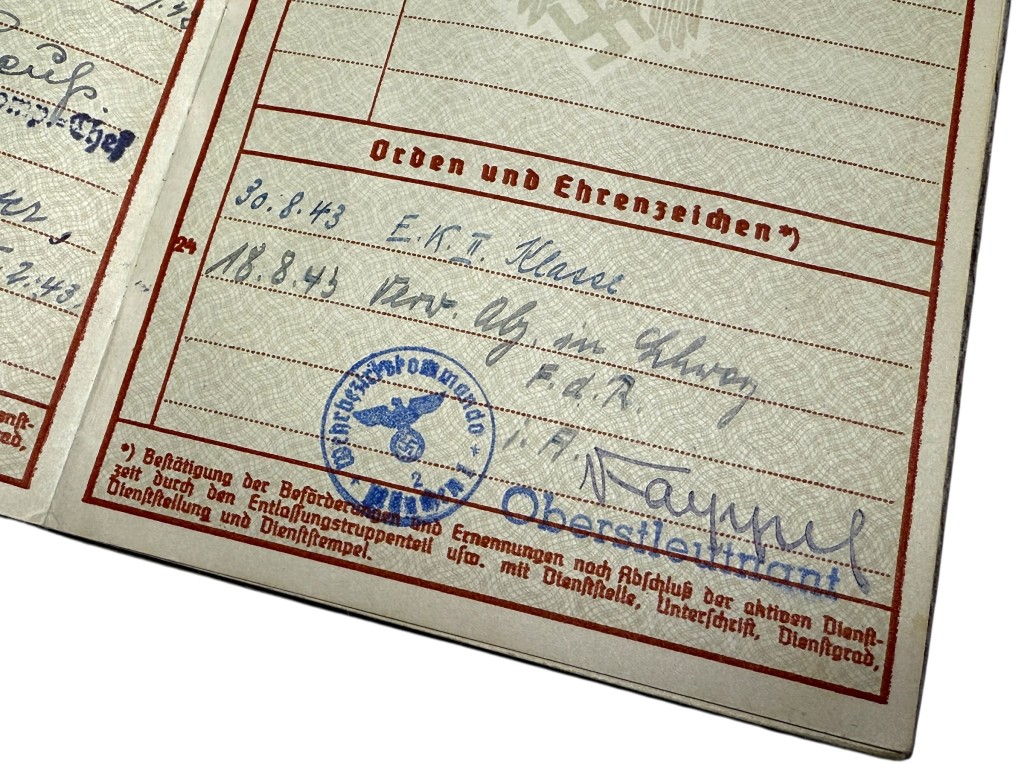 Komp.-Chef
2.43.
Orden und Ehrenzeichen*)
30.8.43 E.K. II. Klasse
24
18.8.43 Verw. Abz. in Schwarz
F.d.R.
i.A.
Wehrbezirkskommando
2
Oberstleutnant
*) Bestätigung der Beförderungen und Ernennungen nach Abschluß der aktiven Dienst-
zeit durch den Entlassungstruppenteil usw. mit Dienststelle, Unterschrift, Dienstgrad,
Dienststellung und Dienststempel.